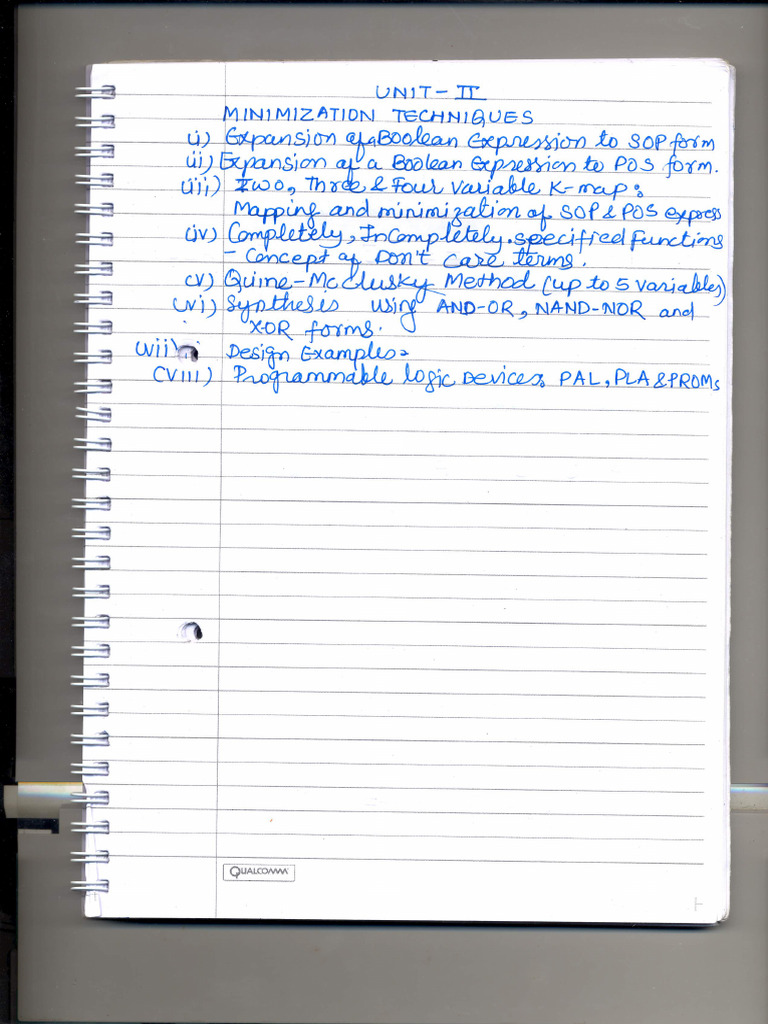 UNIT-II
MINIMIZATION TECHNIQUES
i) Expansion of a Boolean Expression to SOP form
ii) Expansion of a Boolean Expression to POS form.
iii) Two, Three & Four variable K-map:
Mapping and minimization of SOP & POS express
iv) Completely, InCompletely specified Functions
- Concept of Don't care terms.
(v) Quine-McClusky Method (up to 5 variables)
(vi) Synthesis using AND-OR, NAND-NOR and
X-OR forms.
(vii) Design Examples
(VIII) Programmable logic Devices, PAL, PLA & PROMs
QUALCOMM